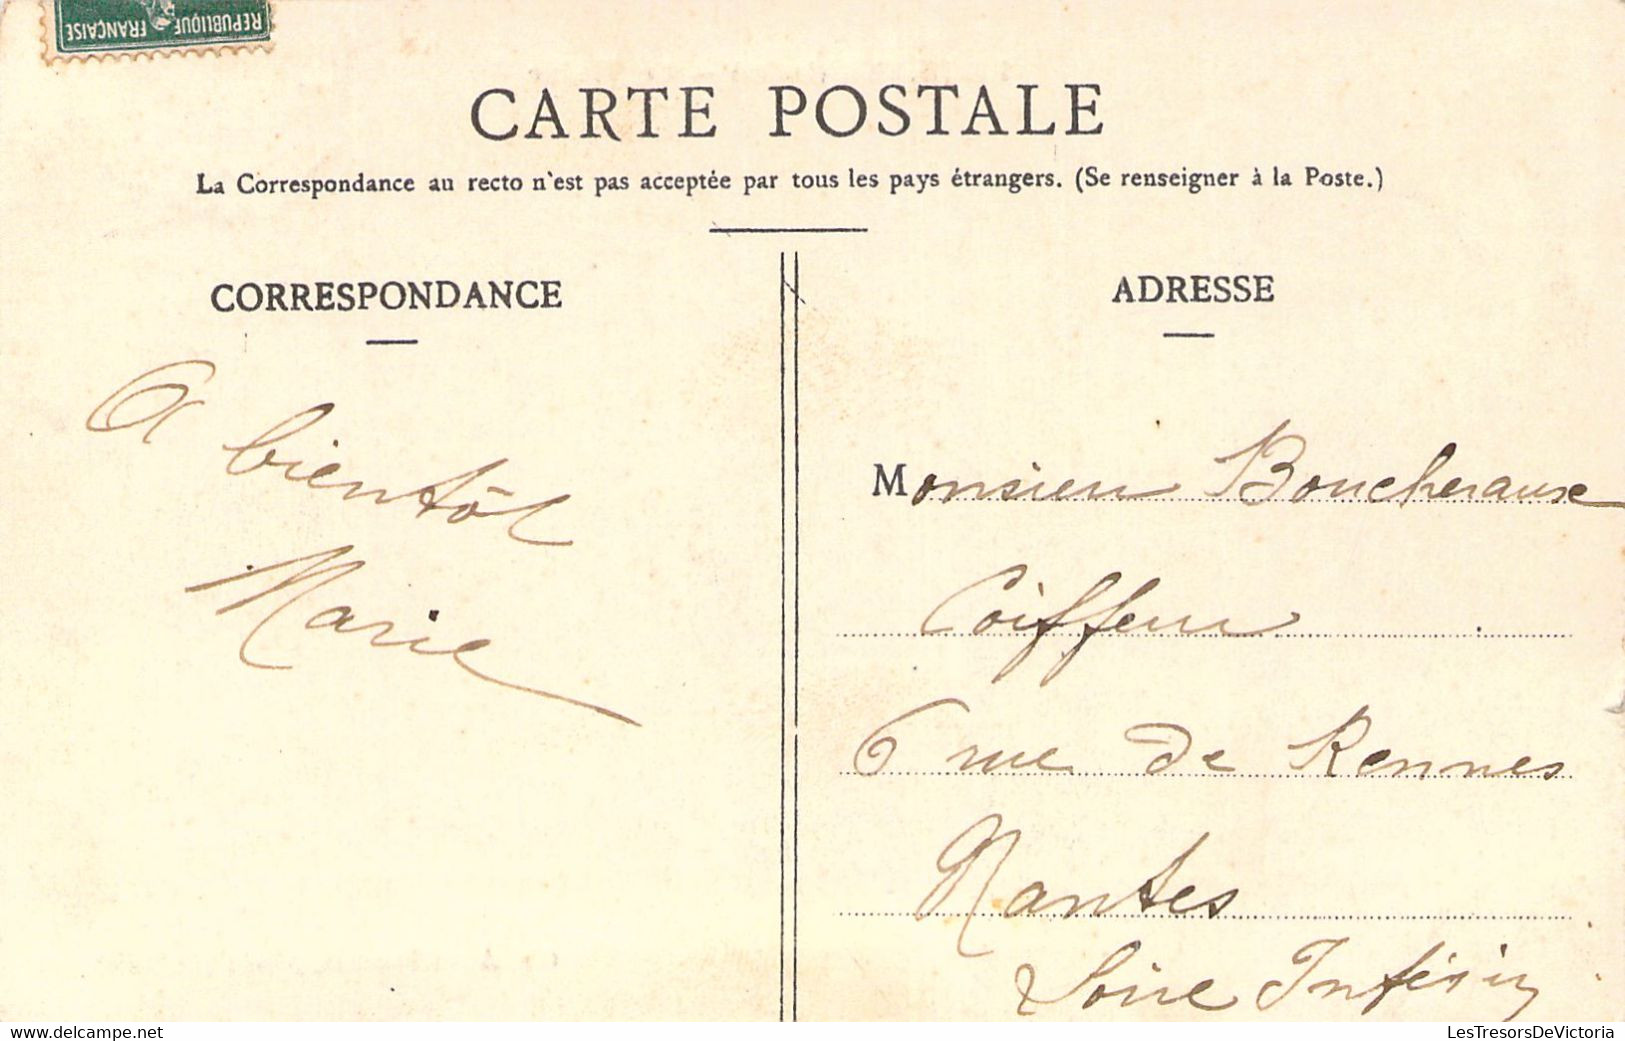 REPUBLIQUE FRANÇAISE
CARTE POSTALE
La Correspondance au recto n'est pas acceptée par tous les pays étrangers. (Se renseigner à la Poste.)
CORRESPONDANCE
A bientôt
Marie
ADRESSE
Monsieur Boucheraux
Coiffeur
6 rue de Rennes
Nantes
Loire Inférie
www.delcampe.net
LesTresorsDeVictoria